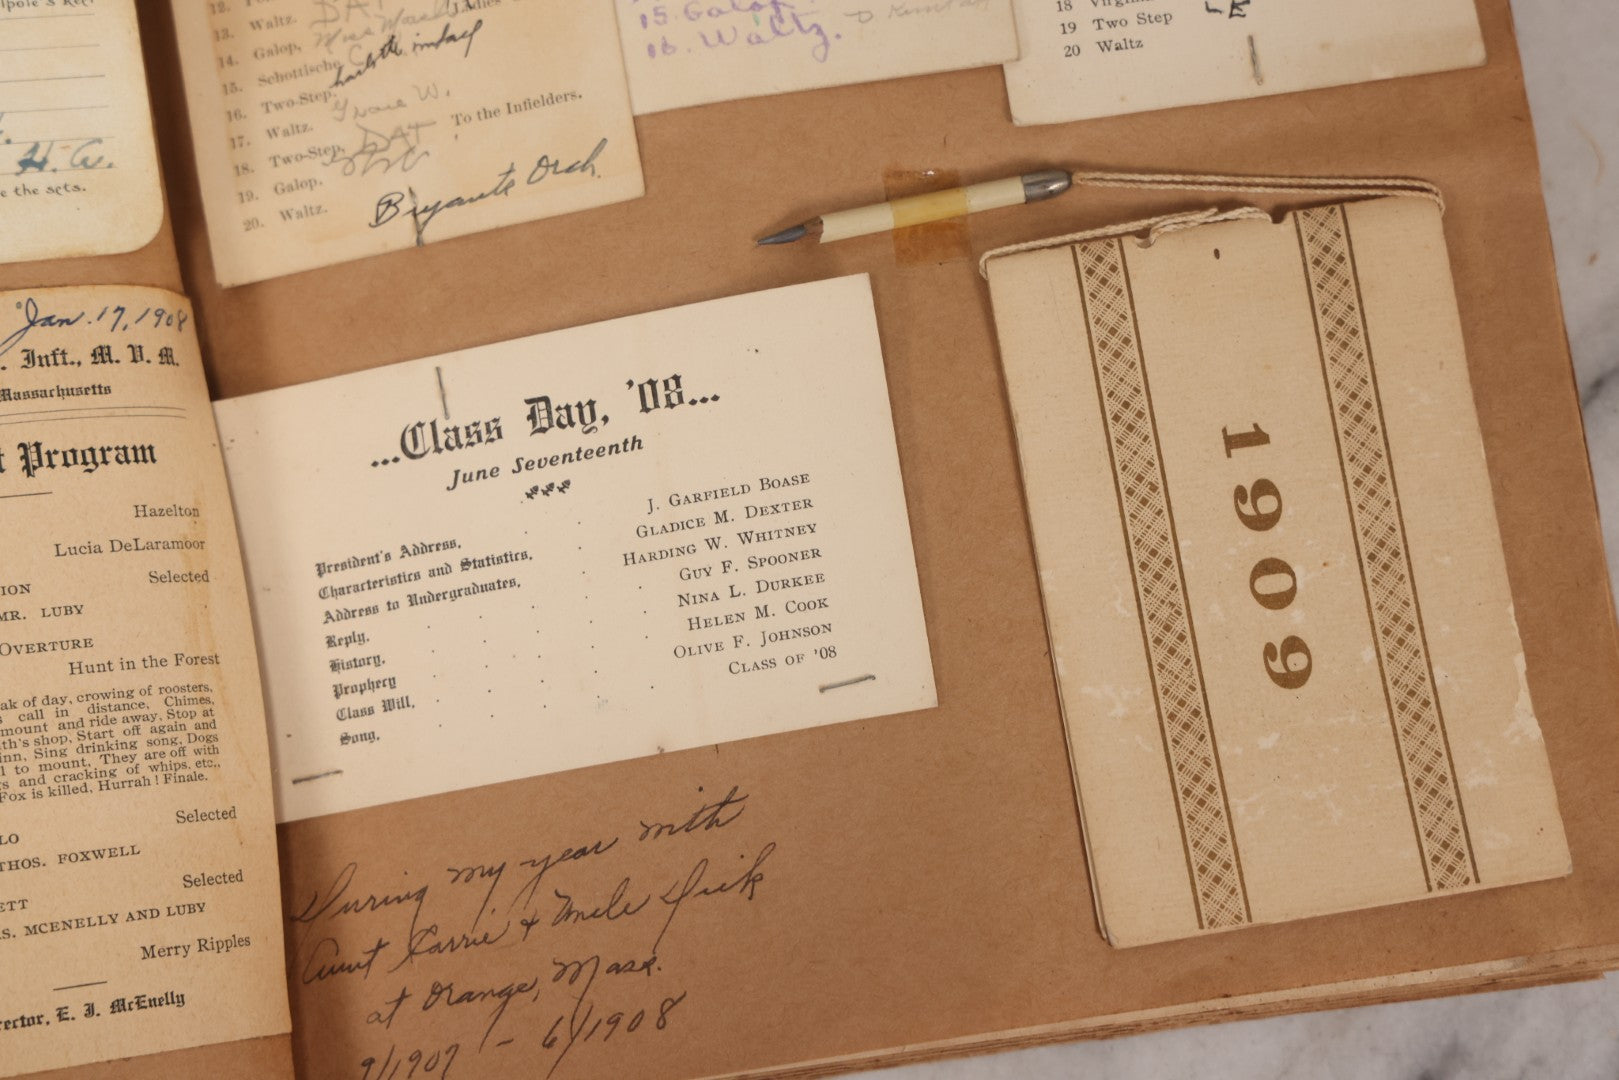 pole's Reel
H. A.
e the sets.
12.
13. Waltz. DAT
14. Galop, Miss
Ladies
15. Schottische
16. Two-Step. Grace W.
17. Waltz. DAT To the Infielders.
18. Two-Step,
19. Galop.
20. Waltz.
Bryants Orch.
15. Galop.
16. Waltz.
18
19 Two Step
20 Waltz
Jan. 17, 1908
. Inft., M. V. M.
Massachusetts
t Program
Hazelton
Lucia DeLaramoor
Selected
ION
MR. LUBY
OVERTURE
Hunt in the Forest
ak of day, crowing of roosters,
s call in distance, Chimes,
mount and ride away, Stop at
th's shop, Start off again and
inn, Sing drinking song, Dogs
l to mount, They are off with
gs and cracking of whips, etc.,
Fox is killed, Hurrah! Finale.
Selected
LO
THOS. FOXWELL
Selected
ETT
S. MCENELLY AND LUBY
Merry Ripples
rector, E. J. McEnelly
...Class Day, '08...
June Seventeenth
President's Address, . . J. GARFIELD BOASE
Characteristics and Statistics, . GLADICE M. DEXTER
Address to Undergraduates, . HARDING W. WHITNEY
Reply, . . . . GUY F. SPOONER
History, . . . . NINA L. DURKEE
Prophecy . . . . HELEN M. COOK
Class Will, . . . . OLIVE F. JOHNSON
Song, . . . . CLASS OF '08
During my year with
Aunt Carrie & Uncle Dick
at Orange, Mass.
9/1907 - 6/1908
1909